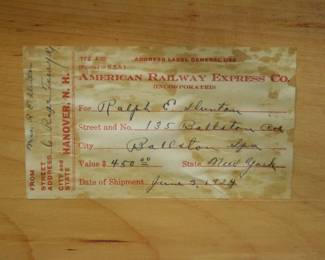 ADDRESS LABEL GENERAL USE
(Printed in U.S.A.)
AMERICAN RAILWAY EXPRESS CO.
(INCORPORATED)
For Ralph E. Dunton
Street and No. 135 Ballston Ave
City Ballston Spa
Value $ 450 00 State, New York
Date of Shipment, June 5, 1924
FROM Mrs. R
STREET
ADDRESS
CITY and STATE HANOVER, N. H.